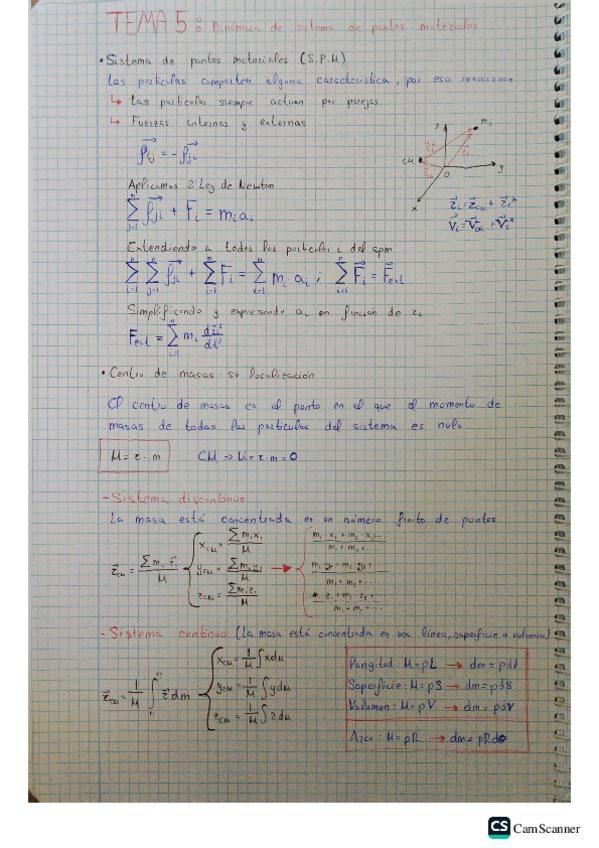 TEMA 5: Dinámica de sistema de puntos materiales
• Sistema de puntos materiales (S.P.M)
Las partículas comparten alguna característica, por eso
↳ Las partículas siempre actúan por parejas
↳ Fuerzas internas y externas
f⃗ij = -f⃗ji
Aplicamos 2ª Ley de Newton
∑ f⃗ji + Fi = mi ai
CM
O
x
y
z⃗i = z⃗CM + z⃗i*
v⃗i = v⃗CM + v⃗i*
Extendiendo a todas las partículas i del spm
∑ ∑ f⃗ji + ∑ F⃗i = ∑ mi ai ; ∑ F⃗i = F⃗ext
Simplificando y expresando ai en función de zi
Fext = ∑ mi d²z⃗i/dt²
• Centro de masas: su localización
El centro de masas es el punto en el que el momento de
masas de todas las partículas del sistema es nulo
M = z · m CM ⇒ M = z · m = 0
- Sistema discontinuo
La masa está concentrada en un número finito de puntos
z⃗CM = ∑ mi z⃗i / M
xCM = ∑ mi xi / M → m1 · x1 + m2 · x2 ... / m1 + m2 + ...
yCM = ∑ mi yi / M → m1 · y1 + m2 · y2 + ... / m1 + m2 + ...
zCM = ∑ mi zi / M → m1 · z1 + m2 · z2 + ... / m1 + m2 + ...
- Sistema continuo (La masa está concentrada en una línea, superficie o volumen)
z⃗CM = 1/M ∫ z⃗ dm
xCM = 1/M ∫ x dm
yCM = 1/M ∫ y dm
zCM = 1/M ∫ z dm
Longitud: M = ρL → dm = ρdl
Superficie: M = ρS → dm = ρdS
Volumen: M = ρV → dm = ρdV
Arco: M = ρR → dm = ρRdθ
CS CamScanner